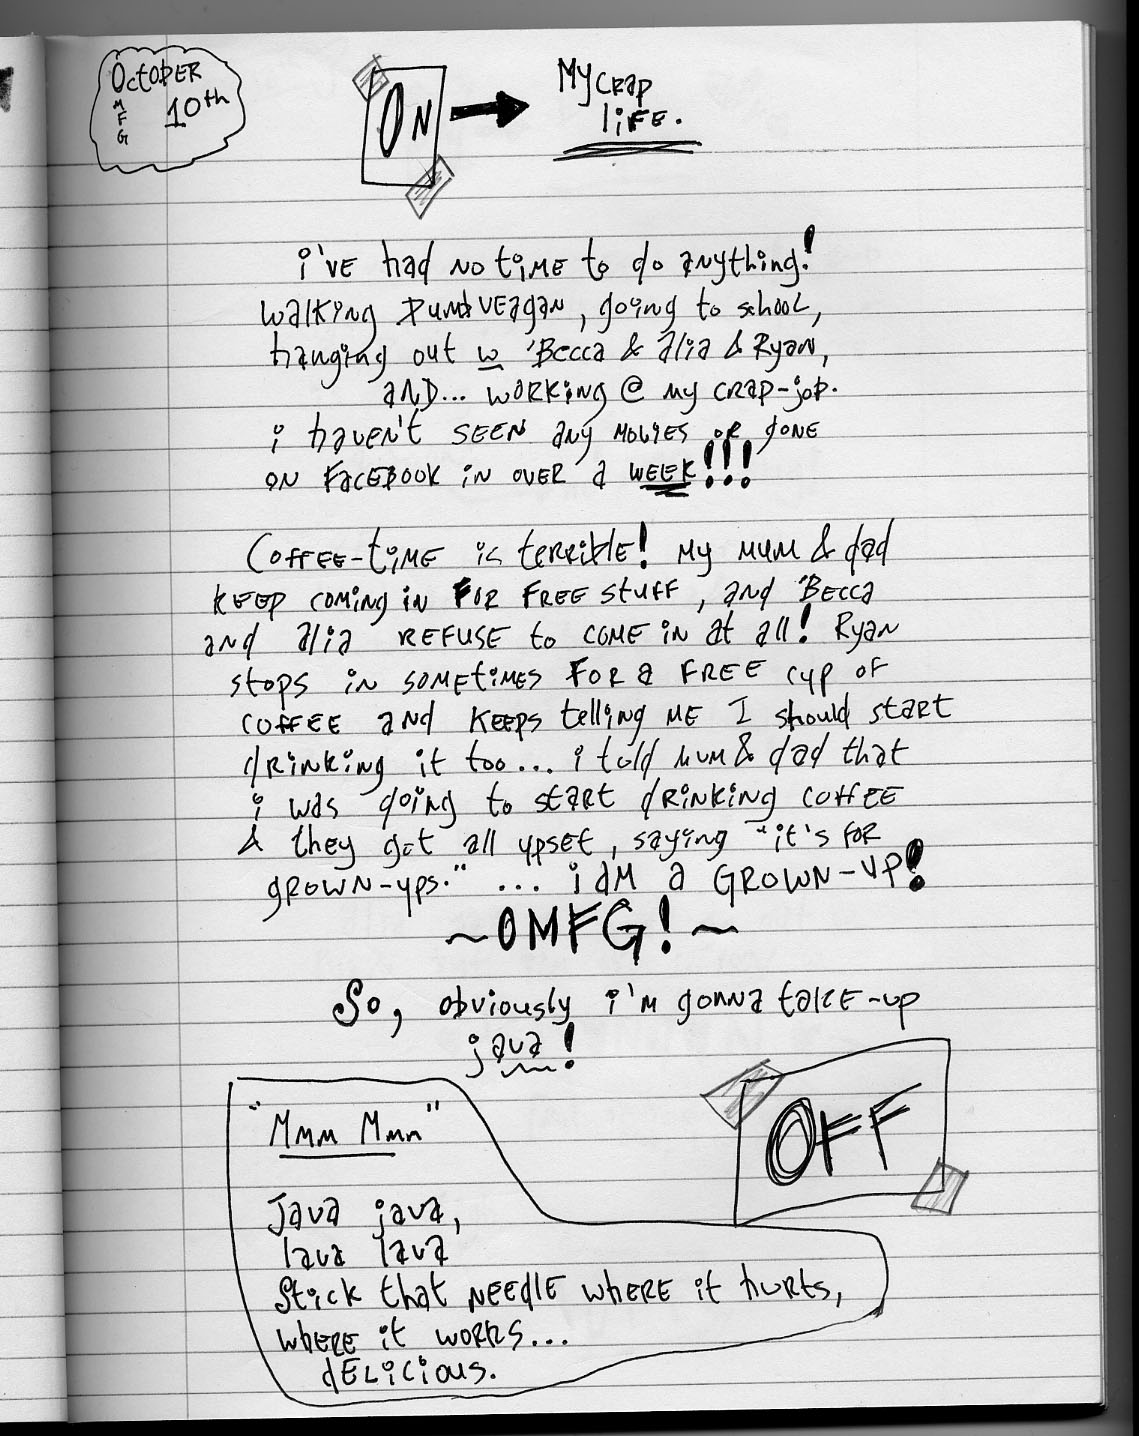 October
10th
M
F
G
ON
My crap
life.
i've had no time to do anything!
walking Dumbveagan, going to school,
hanging out w 'Becca & alia & Ryan,
and... working @ my crap-job.
i haven't seen any movies or gone
on Facebook in over a week!!!
Coffee-time is terrible! My mum & dad
keep coming in for free stuff, and 'Becca
and alia refuse to come in at all! Ryan
stops in sometimes for a free cup of
coffee and keeps telling me I should start
drinking it too... i told mum & dad that
i was going to start drinking coffee
& they got all upset, saying "it's for
grown-ups." ... i am a grown-up!
~OMFG!~
So, obviously i'm gonna take-up
java!
OFF
"Mmm Mmm"
Java java,
lava lava
Stick that needle where it hurts,
where it works...
delicious.